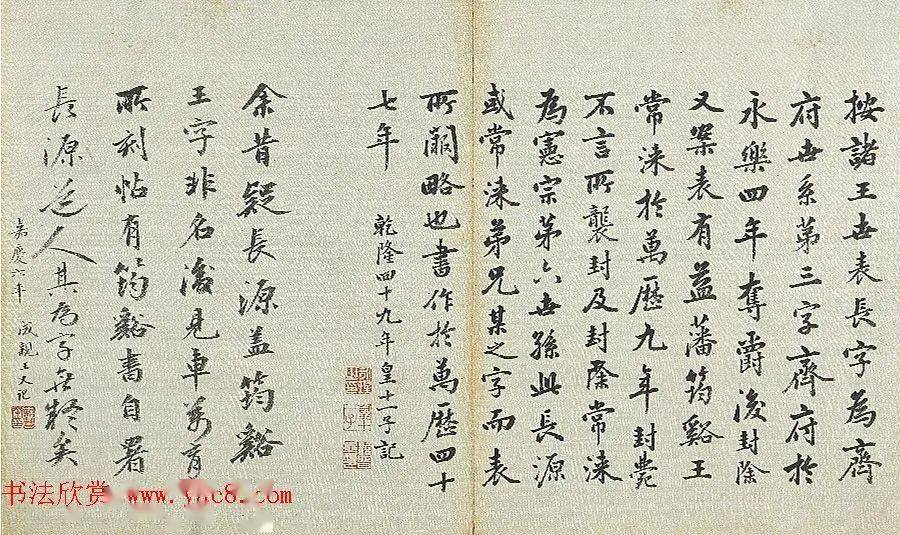 按諸王世表長字為齊
府世系第三字齊府於
永樂四年奪爵後封除
又案表有益藩筠谿王
常淶於萬歷九年封薨
不言所襲封及封除常淶
為憲宗第六世孫此長源
或常淶弟兄某之字而表
所闕略也書作於萬歷四十
七年
乾隆四十九年皇十一子記
余昔疑長源蓋筠谿
王字非名後見車萬育
所刻帖有筠谿書自署
長源道人其為字無疑矣
嘉慶六年
成親王又記
书法欣赏 www.yac8.com